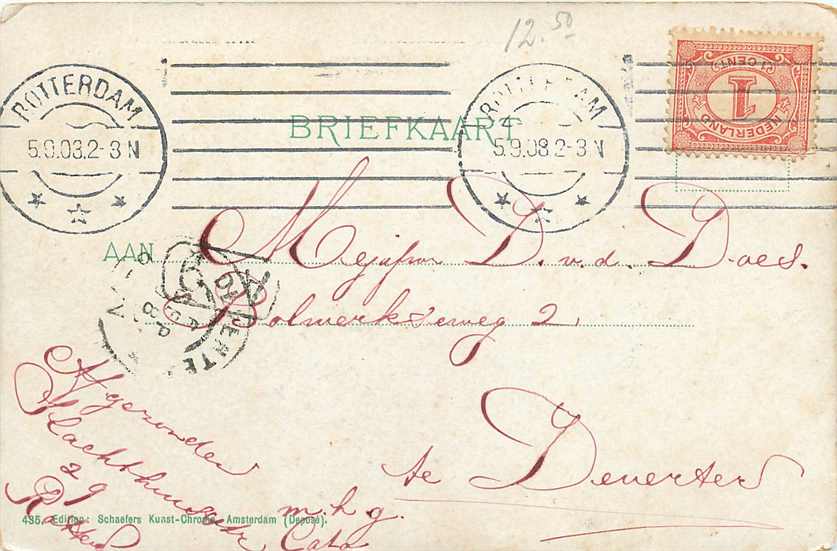 12.50
ROTTERDAM
5.9.08.2-3 N
ROTTERDAM
5.9.08.2-3 N
NEDERLAND
1
1 CENT
BRIEFKAART
AAN
Mejufvr D. v. d. Does.
Bolwerksweg 2
te Deventer
Afgezonden
29
m.h.g.
Cato
435. Edition: Schaefers Kunst-Chromo, Amsterdam (Deposé).